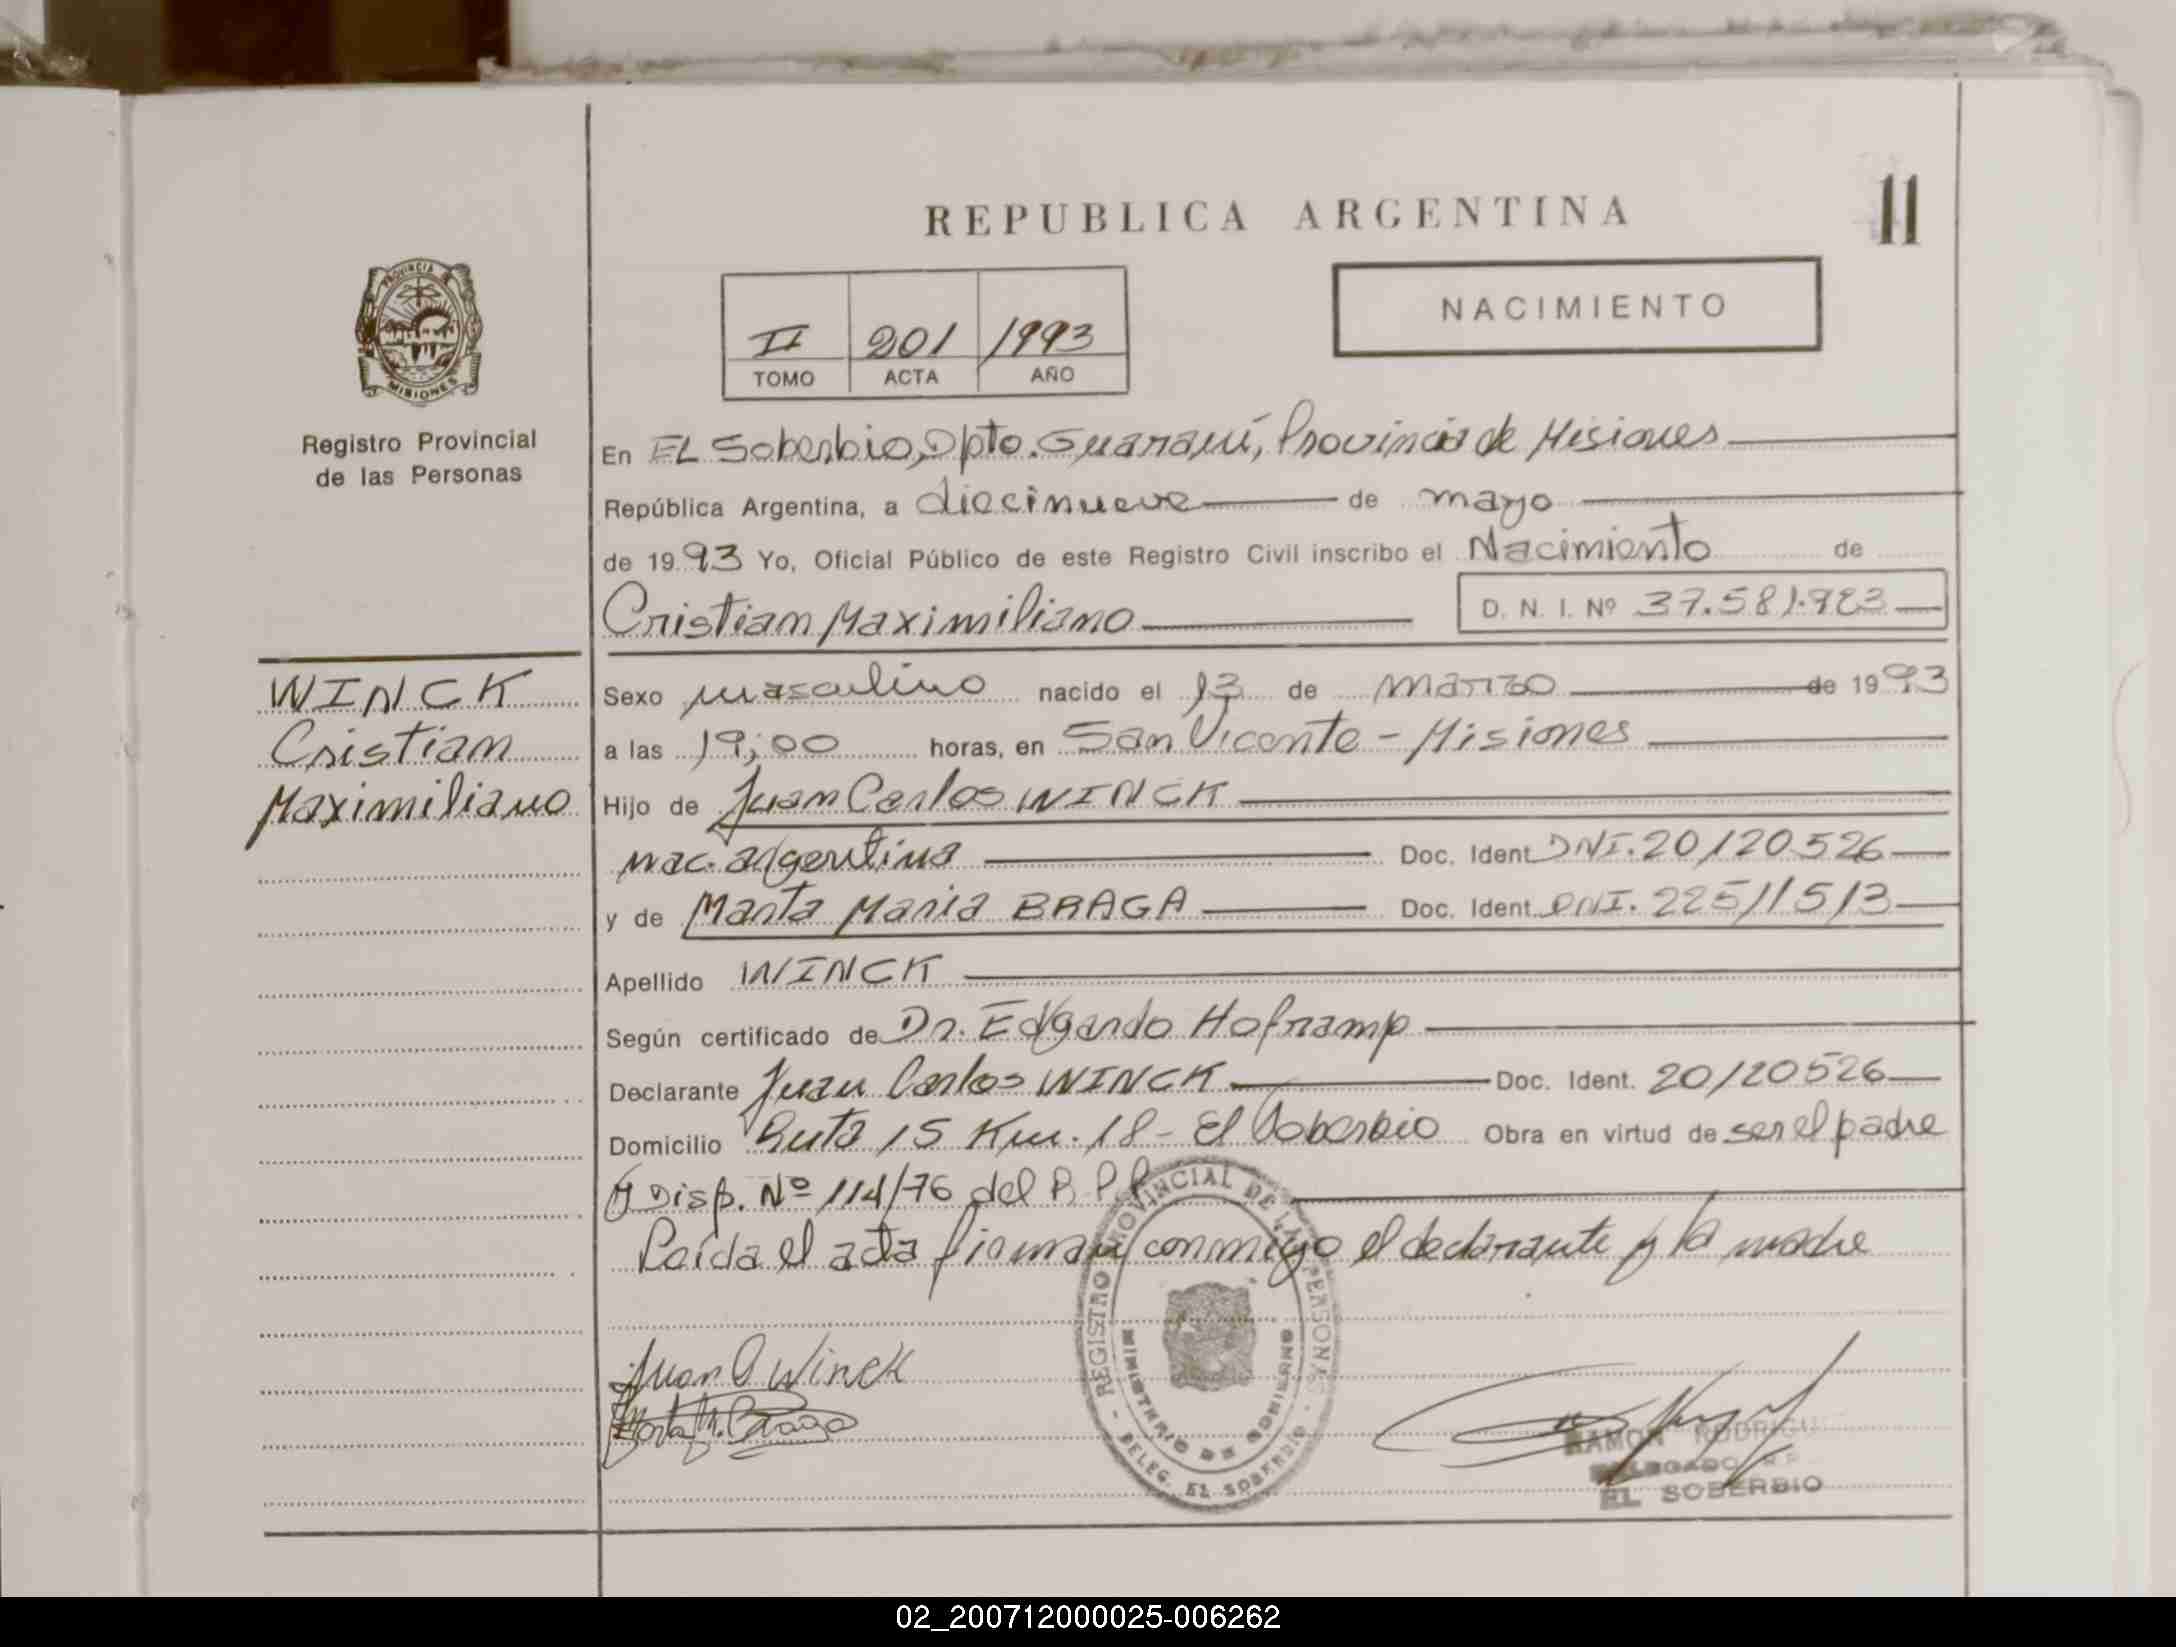 REPUBLICA ARGENTINA
11
PROVINCIA DE
MISIONES
Registro Provincial
de las Personas
II 201 1993
TOMO ACTA AÑO
NACIMIENTO
En EL Soberbio, Dpto. Guaraní, Provincia de Misiones
República Argentina, a diecinueve de mayo
de 1993 Yo, Oficial Público de este Registro Civil inscribo el Nacimiento de
Cristian Maximiliano D. N. I. Nº 37.581.983
WINCK
Cristian
Maximiliano
Sexo masculino nacido el 13 de marzo de 1993
a las 19;00 horas, en San Vicente - Misiones
Hijo de Juan Carlos WINCK
nac. argentina Doc. Ident DNI. 20120526
y de Marta Maria BRAGA Doc. Ident. DNI. 22511513
Apellido WINCK
Según certificado de Dr. Edgardo Hoframp
Declarante Juan Carlos WINCK Doc. Ident. 20120526
Domicilio Ruta 15 Km. 18 - El Soberbio Obra en virtud de ser el padre
Disp. Nº 114/76 del R. P. P.
Leída el acta firman conmigo el declarante y la madre
REGISTRO PROVINCIAL DE LAS PERSONAS
MINISTERIO DE GOBIERNO
DELEG. EL SOBERBIO
Juan C Winck
Marta M. Braga
RAMON RODRIGU
DELEGADO R.P.
EL SOBERBIO
02_200712000025-006262